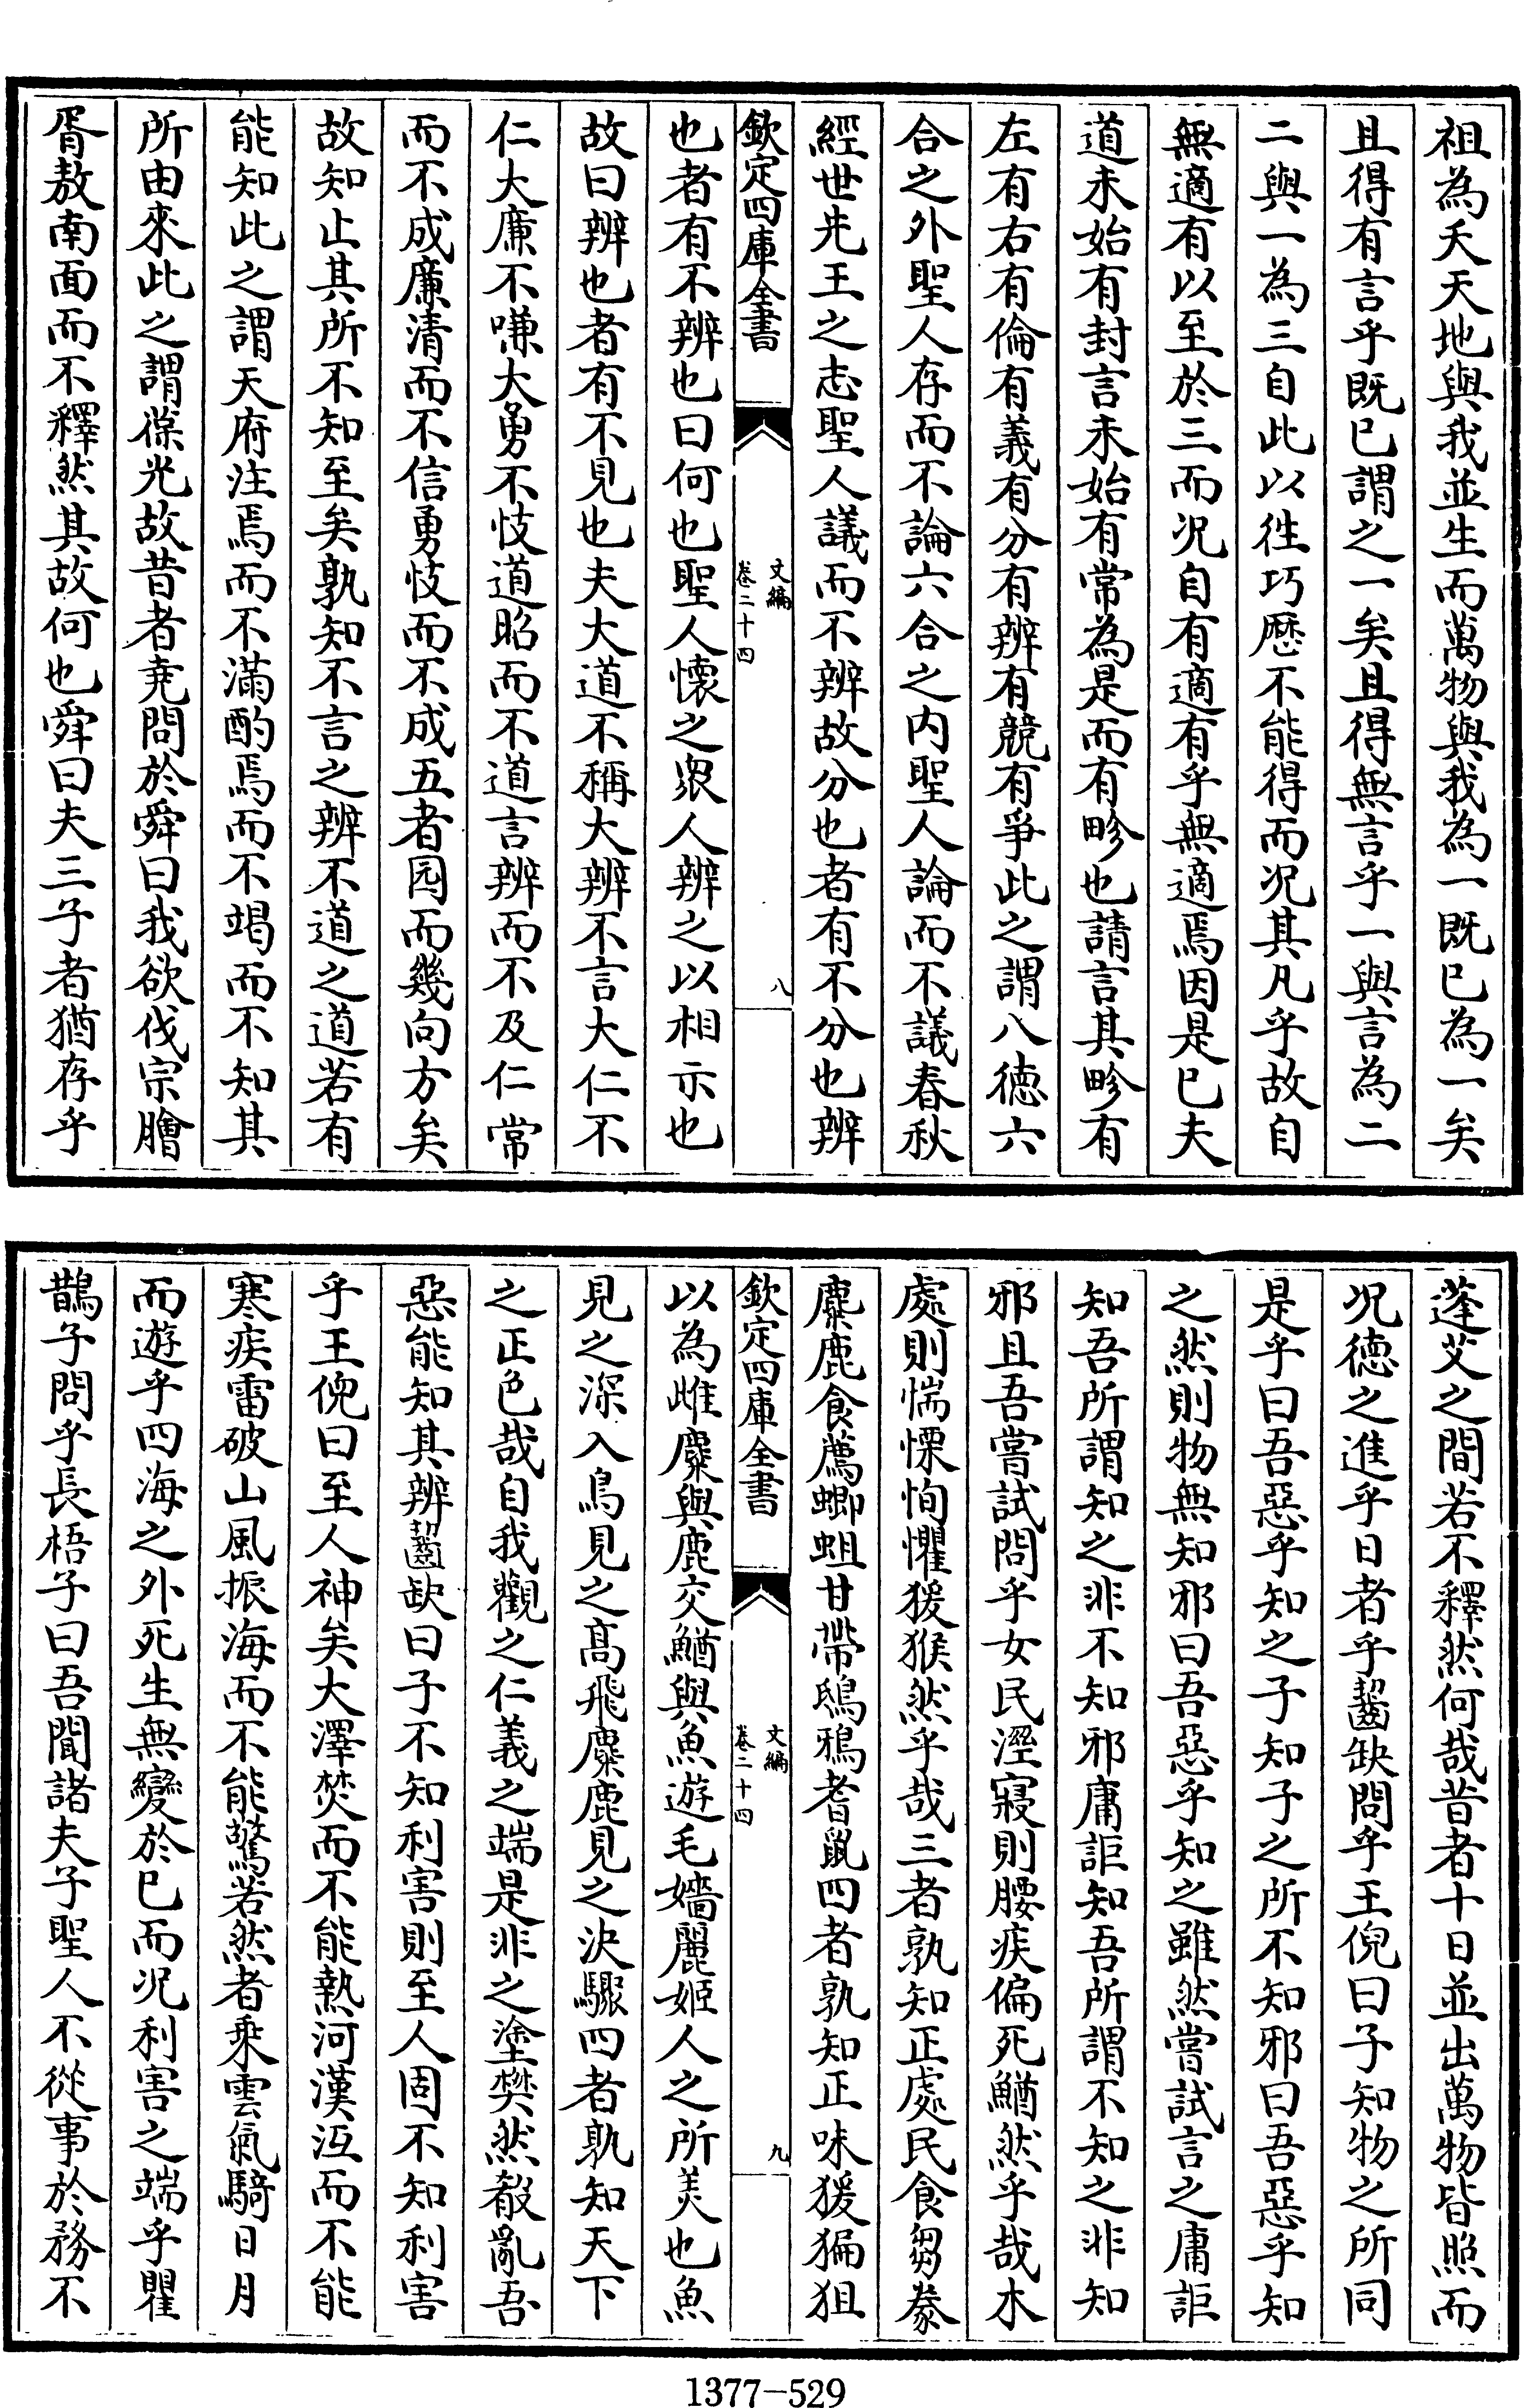 祖為夭天地與我並生而萬物與我為一既已為一矣
且得有言乎既已謂之一矣且得無言乎一與言為二
二與一為三自此以徃巧厯不能得而况其凡乎故自
無適有以至於三而况自有適有乎無適焉因是已夫
道未始有封言未始有常為是而有畛也請言其畛有
左有右有倫有義有分有辨有競有爭此之謂八德六
合之外聖人存而不論六合之内聖人論而不議春秋
經世先王之志聖人議而不辨故分也者有不分也辨
欽定四庫全書
文編
卷二十四
八
也者有不辨也曰何也聖人懷之衆人辨之以相示也
故曰辨也者有不見也夫大道不稱大辨不言大仁不
仁大廉不嗛大勇不忮道昭而不道言辨而不及仁常
而不成廉清而不信勇忮而不成五者园而幾向方矣
故知止其所不知至矣孰知不言之辨不道之道若有
能知此之謂天府注焉而不滿酌焉而不竭而不知其
所由來此之謂葆光故昔者堯問於舜曰我欲伐宗膾
胥敖南面而不釋然其故何也舜曰夫三子者猶存乎
蓬艾之間若不釋然何哉昔者十日並出萬物皆照而
况德之進乎日者乎齧缺問乎王倪曰子知物之所同
是乎曰吾惡乎知之子知子之所不知邪曰吾惡乎知
之然則物無知邪曰吾惡乎知之雖然嘗試言之庸詎
知吾所謂知之非不知邪庸詎知吾所謂不知之非知
邪且吾嘗試問乎女民溼寢則腰疾偏死鰌然乎哉木
處則惴慄恂懼猨猴然乎哉三者孰知正處民食芻豢
麋鹿食薦蝍蛆甘帶鴟鴉耆鼠四者孰知正味猨猵狙
欽定四庫全書
文編
卷二十四
九
以為雌麋與鹿交鰌與魚遊毛嬙麗姬人之所美也魚
見之深入鳥見之髙飛麋鹿見之決驟四者孰知天下
之正色哉自我觀之仁義之端是非之塗樊然殽亂吾
惡能知其辨齧缺曰子不知利害則至人固不知利害
乎王倪曰至人神矣大澤焚而不能熱河漢沍而不能
寒疾雷破山風振海而不能驚若然者乘雲氣騎日月
而遊乎四海之外死生無變於已而况利害之端乎瞿
鵲子問乎長梧子曰吾聞諸夫子聖人不從事於務不
1377-529